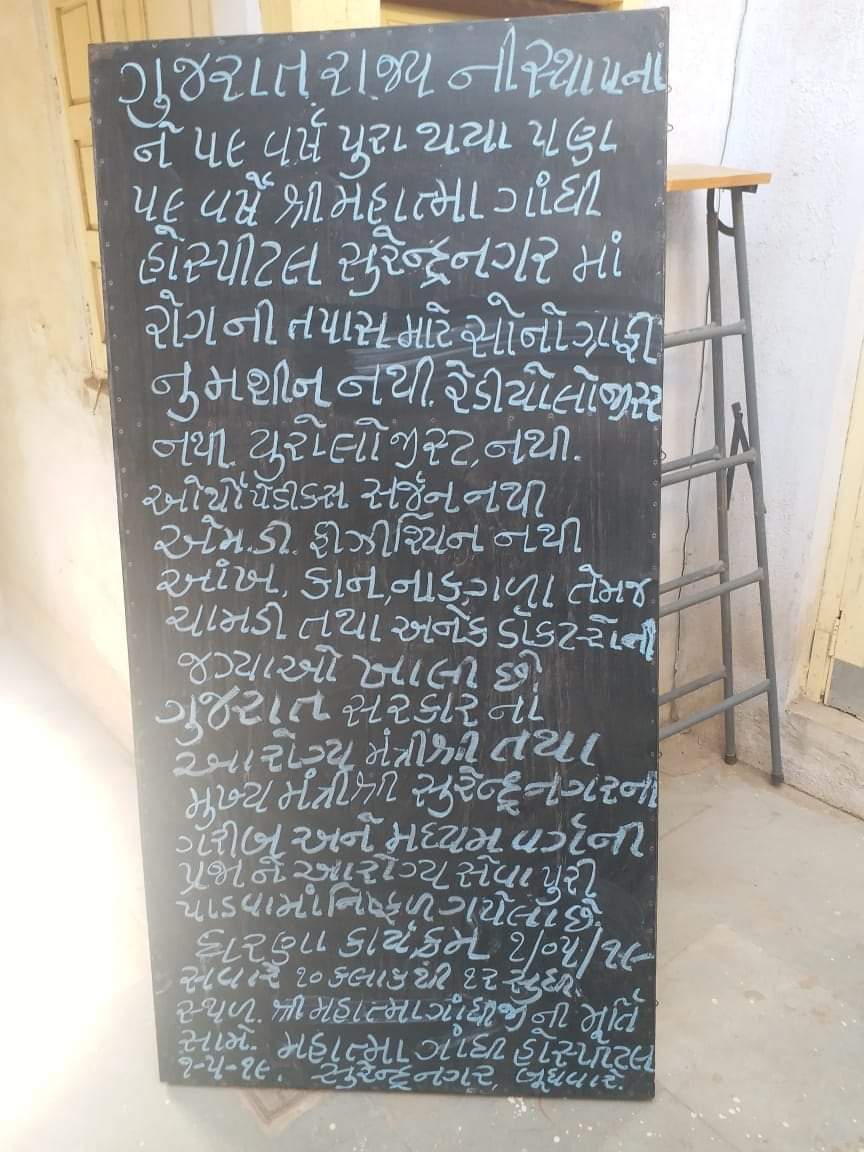 ગુજરાત રાજ્ય ની સ્થાપના
ને ૫૯ વર્ષ પુરા થયા પણ
૫૯ વર્ષે શ્રી મહાત્મા ગાંધી
હોસ્પીટલ સુરેન્દ્રનગર માં
રોગ ની તપાસ માટે સોનોગ્રાફી
નુ મશીન નથી. રેડીયોલોજીસ્ટ
નથી. યુરોલોજીસ્ટ, નથી.
ઓર્થોપેડીકસ સર્જન નથી
એમ.ડી. ફીઝીશ્યિન નથી
આંખ, કાન, નાક, ગળા તેમજ
ચામડી તથા અનેક ડૉકટરોની
જગ્યાઓ ખાલી છે.
ગુજરાત સરકાર ના
આરોગ્ય મંત્રીશ્રી તથા
મુખ્ય મંત્રીશ્રી સુરેન્દ્રનગરના
ગરીબ અને મધ્યમ વર્ગની
પ્રજા ને આરોગ્ય સેવા પુરી
પાડવામાં નિષ્ફળ ગયેલા છે.
ધારણા કાર્યક્રમ ૧/૦૫/૧૯
સવારે ૧૦ કલાક થી ૧૨ સુધી.
સ્થળ. શ્રી મહાત્મા ગાંધીજી ની મૂર્તિ
સામે. મહાત્મા ગાંધી હોસ્પીટલ
૧-૫-૧૯. સુરેન્દ્રનગર, બુધવાર.